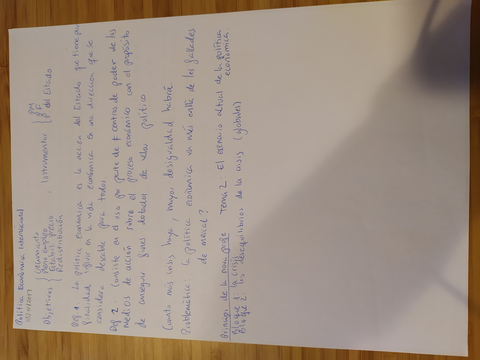 Política Económica Internacional
Objetivos { Crecimiento
Pleno empleo
Estabil. precio
Redistribución
Instrumentos { PM
PF
P del Estado
Def 1: La política económica es la acción del Estado que tiene por
finalidad influir en la vida económica en una dirección que se
considera deseable para todos
Def 2: Consiste en el uso por parte de ≠ centros de poder de los
medios de acción sobre el proceso económico con el propósito
de conseguir fines dotados de valor político
Cuanto más crisis haya, mayor desigualdad habrá
Problemática: la política económica va más allá de los fallados
de mercal?
Principio de la Tema 2: El escenario actual de la política
económica.
Bloque 1: La crisis
Bloque 2: los desequilibrios de la crisis (globales)